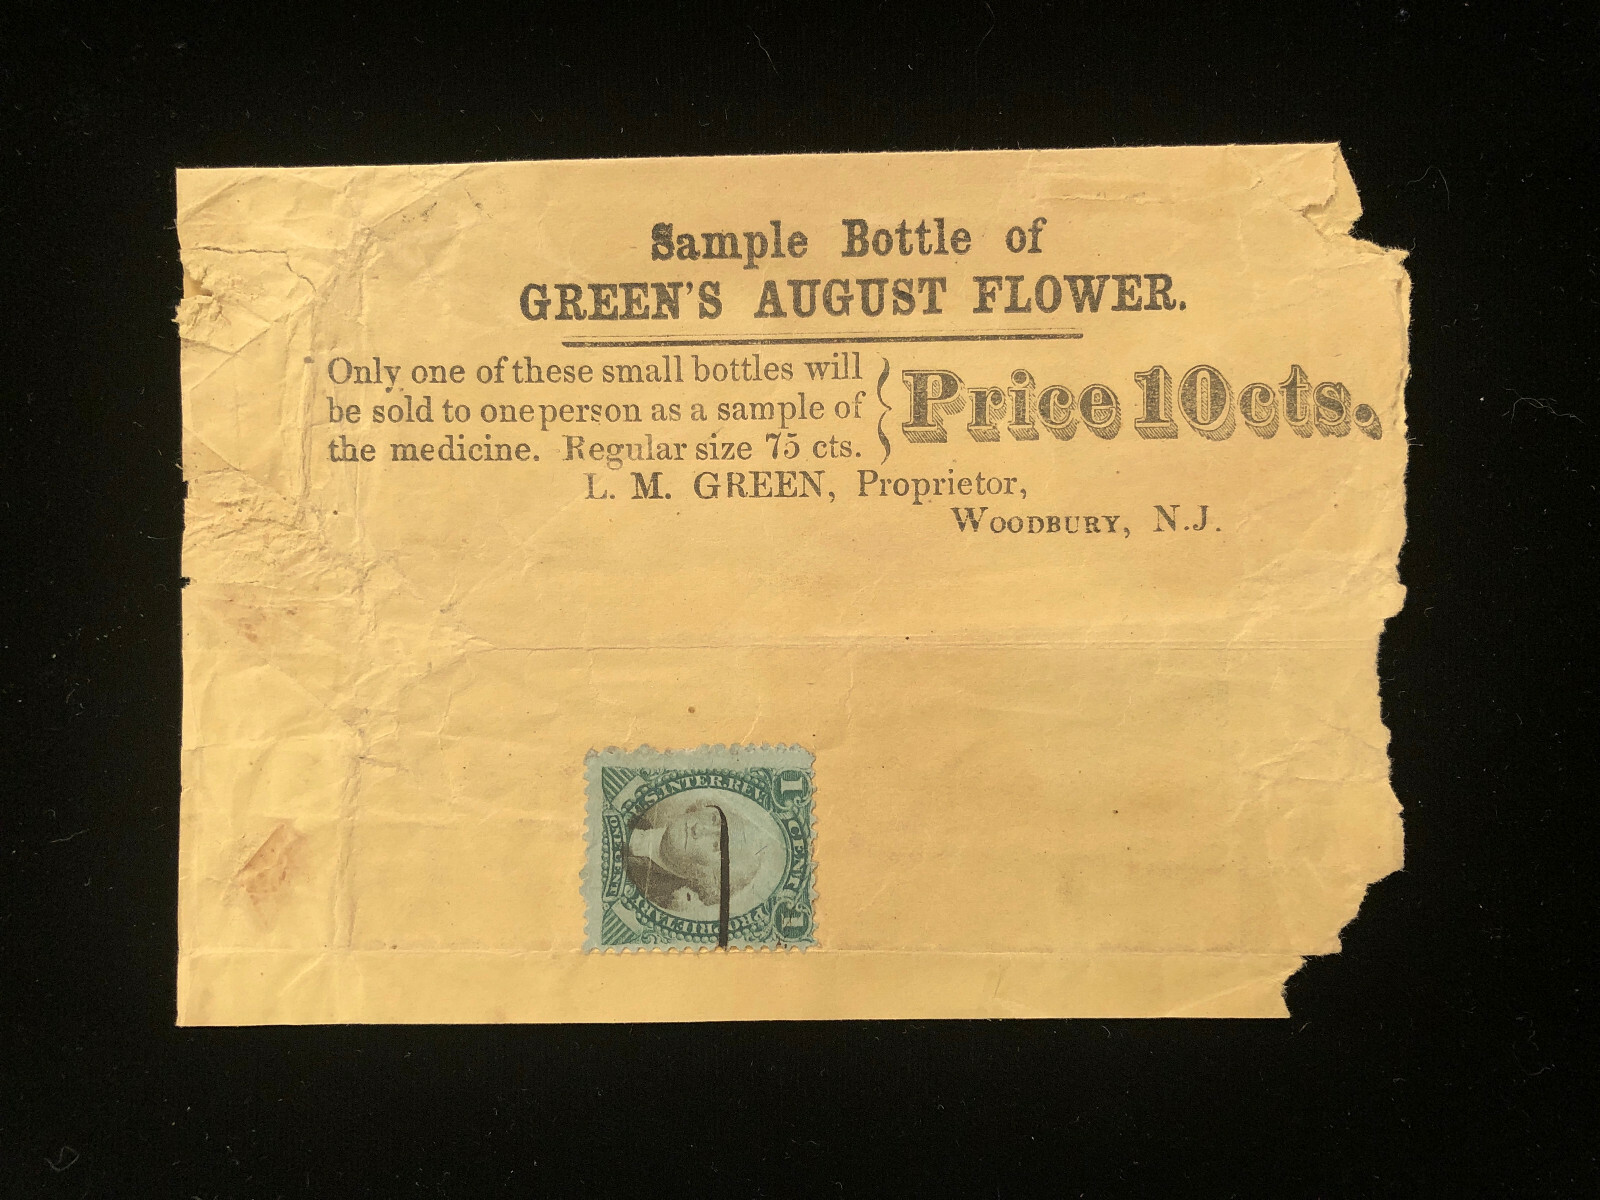 Sample Bottle of
GREEN'S AUGUST FLOWER.
Only one of these small bottles will
be sold to one person as a sample of
the medicine. Regular size 75 cts.
Price 10 cts.
L. M. GREEN, Proprietor,
WOODBURY, N.J.
U.S. INTER. REV.
1 CENT 1
PROPRIETARY
ONE CENT